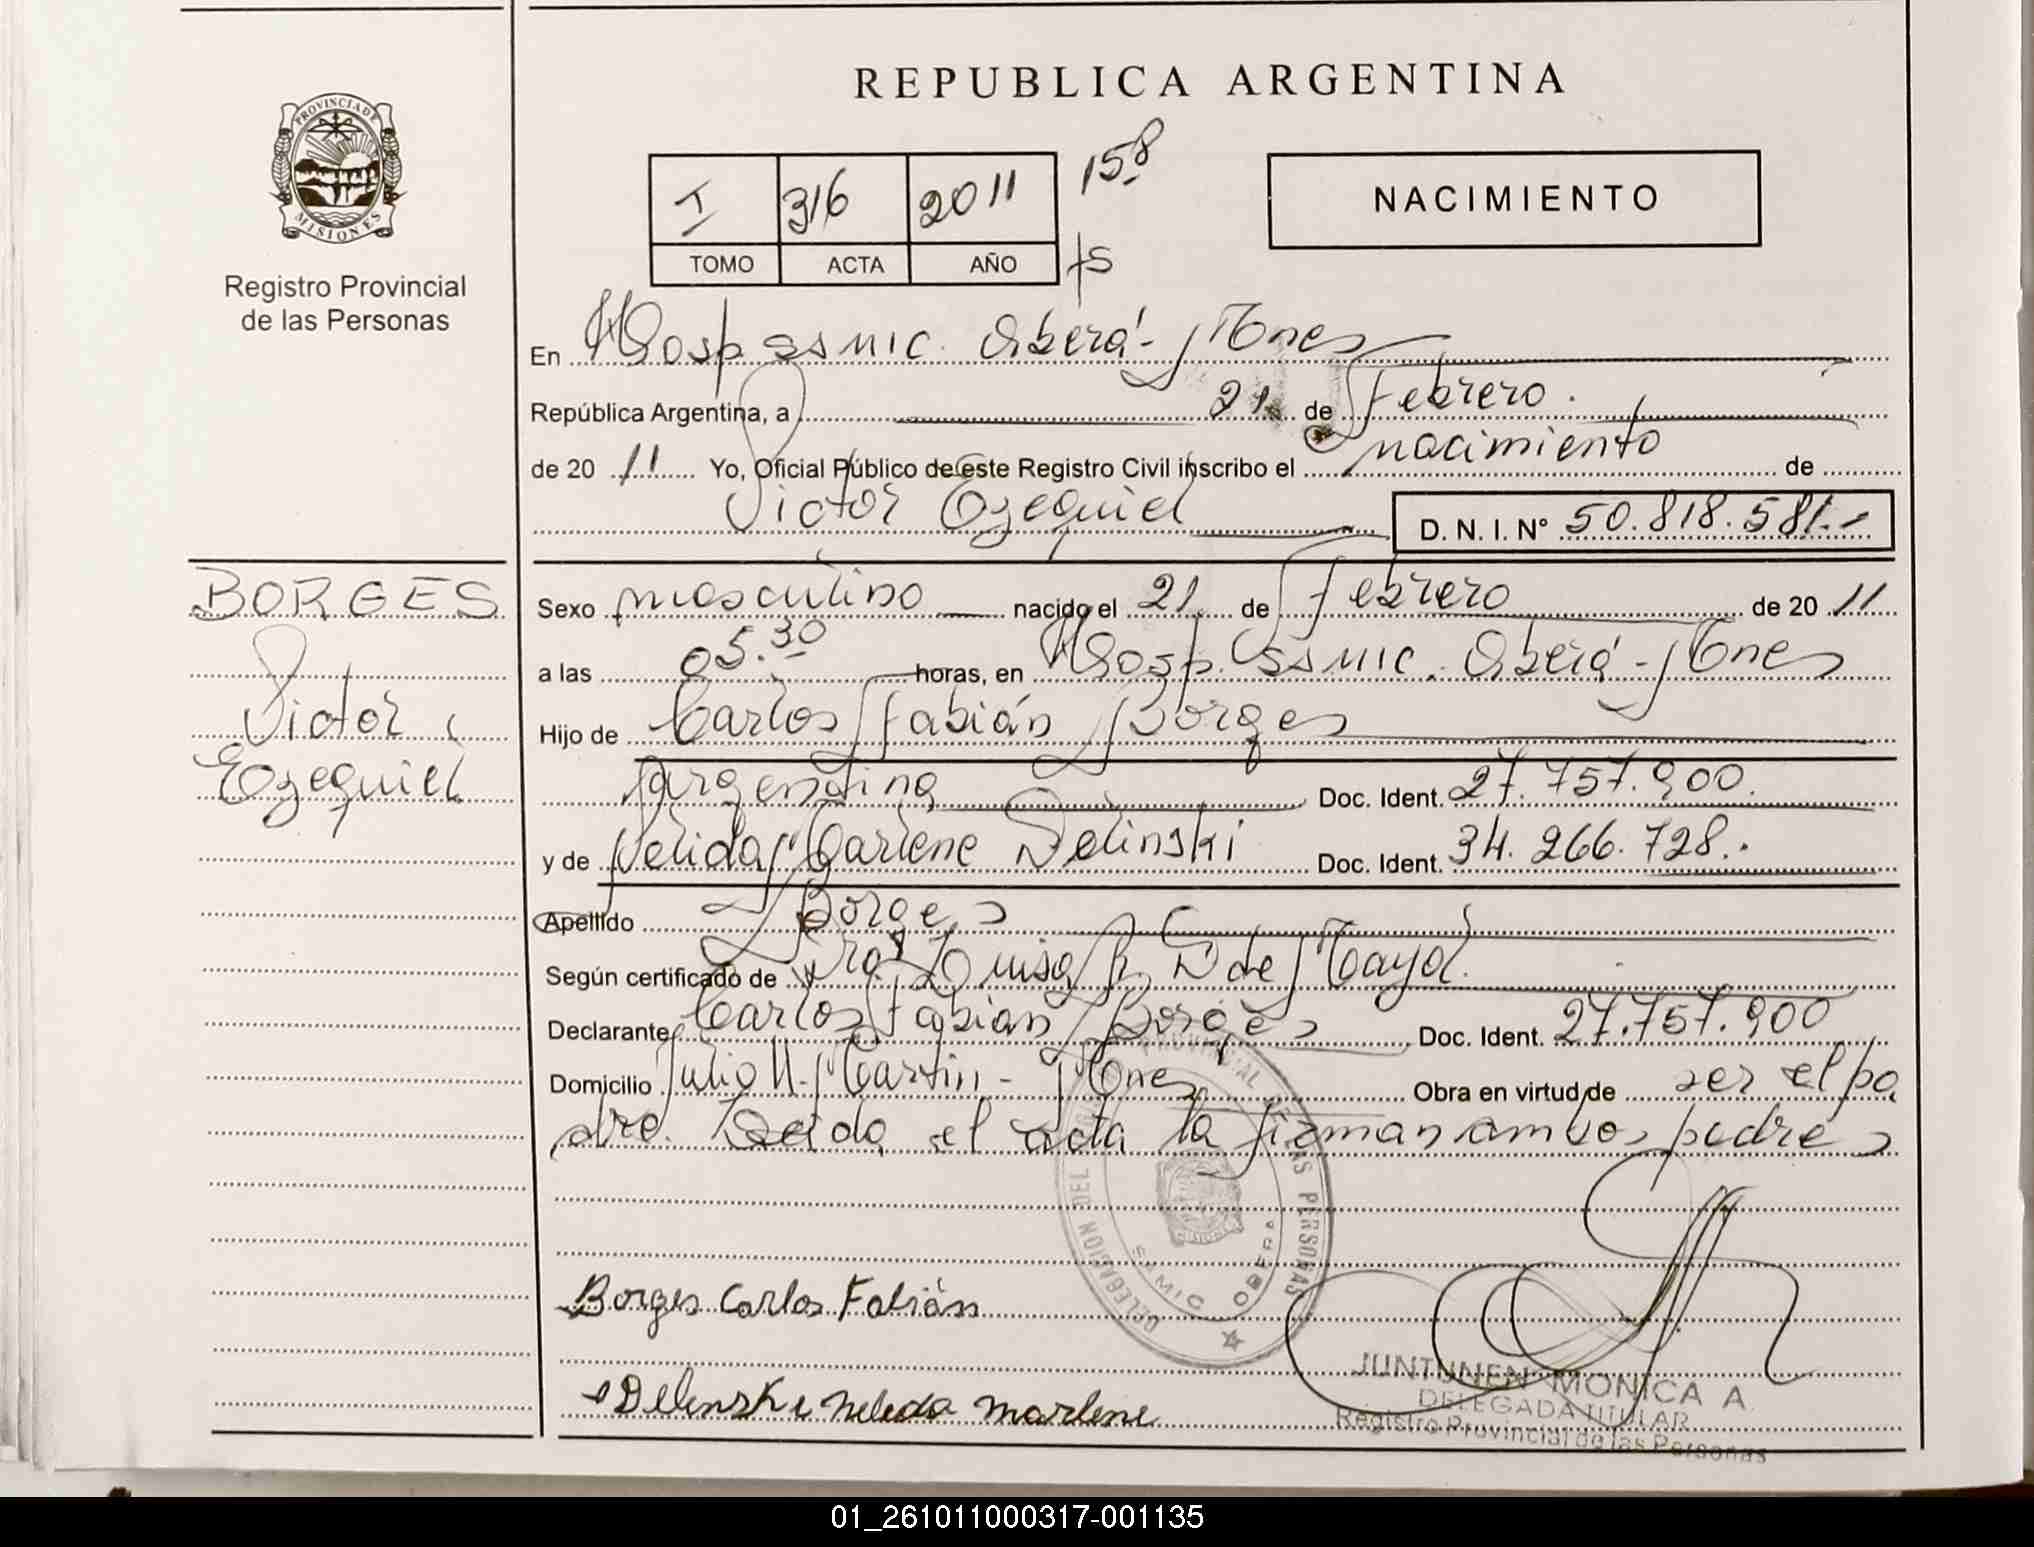 REPUBLICA ARGENTINA
PROVINCIA DE
MISIONES
Registro Provincial
de las Personas
I 316 2011 158
TOMO ACTA AÑO fs
NACIMIENTO
En Hosp SAMIC. Oberá - Mnes
República Argentina, a 21 de Febrero.
de 20 11 Yo, Oficial Público de este Registro Civil inscribo el nacimiento de
Victor Ezequiel D. N. I. N° 50.818.581.-
BORGES
Victor
Ezequiel
Sexo masculino nacido el 21 de Febrero de 20 11
a las 05.30 horas, en Hosp. SAMIC. Oberá - Mnes
Hijo de Carlos Fabián Borges
Argentina Doc. Ident. 27.757.900.
y de Nelida Marlene Delinski Doc. Ident. 34.266.728.-
Apellido Borges
Según certificado de Dra Luisa R. D de Mayol.
Declarante Carlos Fabián Borges Doc. Ident. 27.757.900
Domicilio Julio U. Martin - Mnes Obra en virtud de ser el pa
dre. Leida el acta la firman ambos padres
DELEGACION DEL REGISTRO PROVINCIAL DE LAS PERSONAS
SAMIC OBERA
Borges Carlos Fabián
Delinski Nelida Marlene
JUNTUNEN MONICA A
DELEGADA TITULAR
Registro Provincial de las Personas
01_261011000317-001135